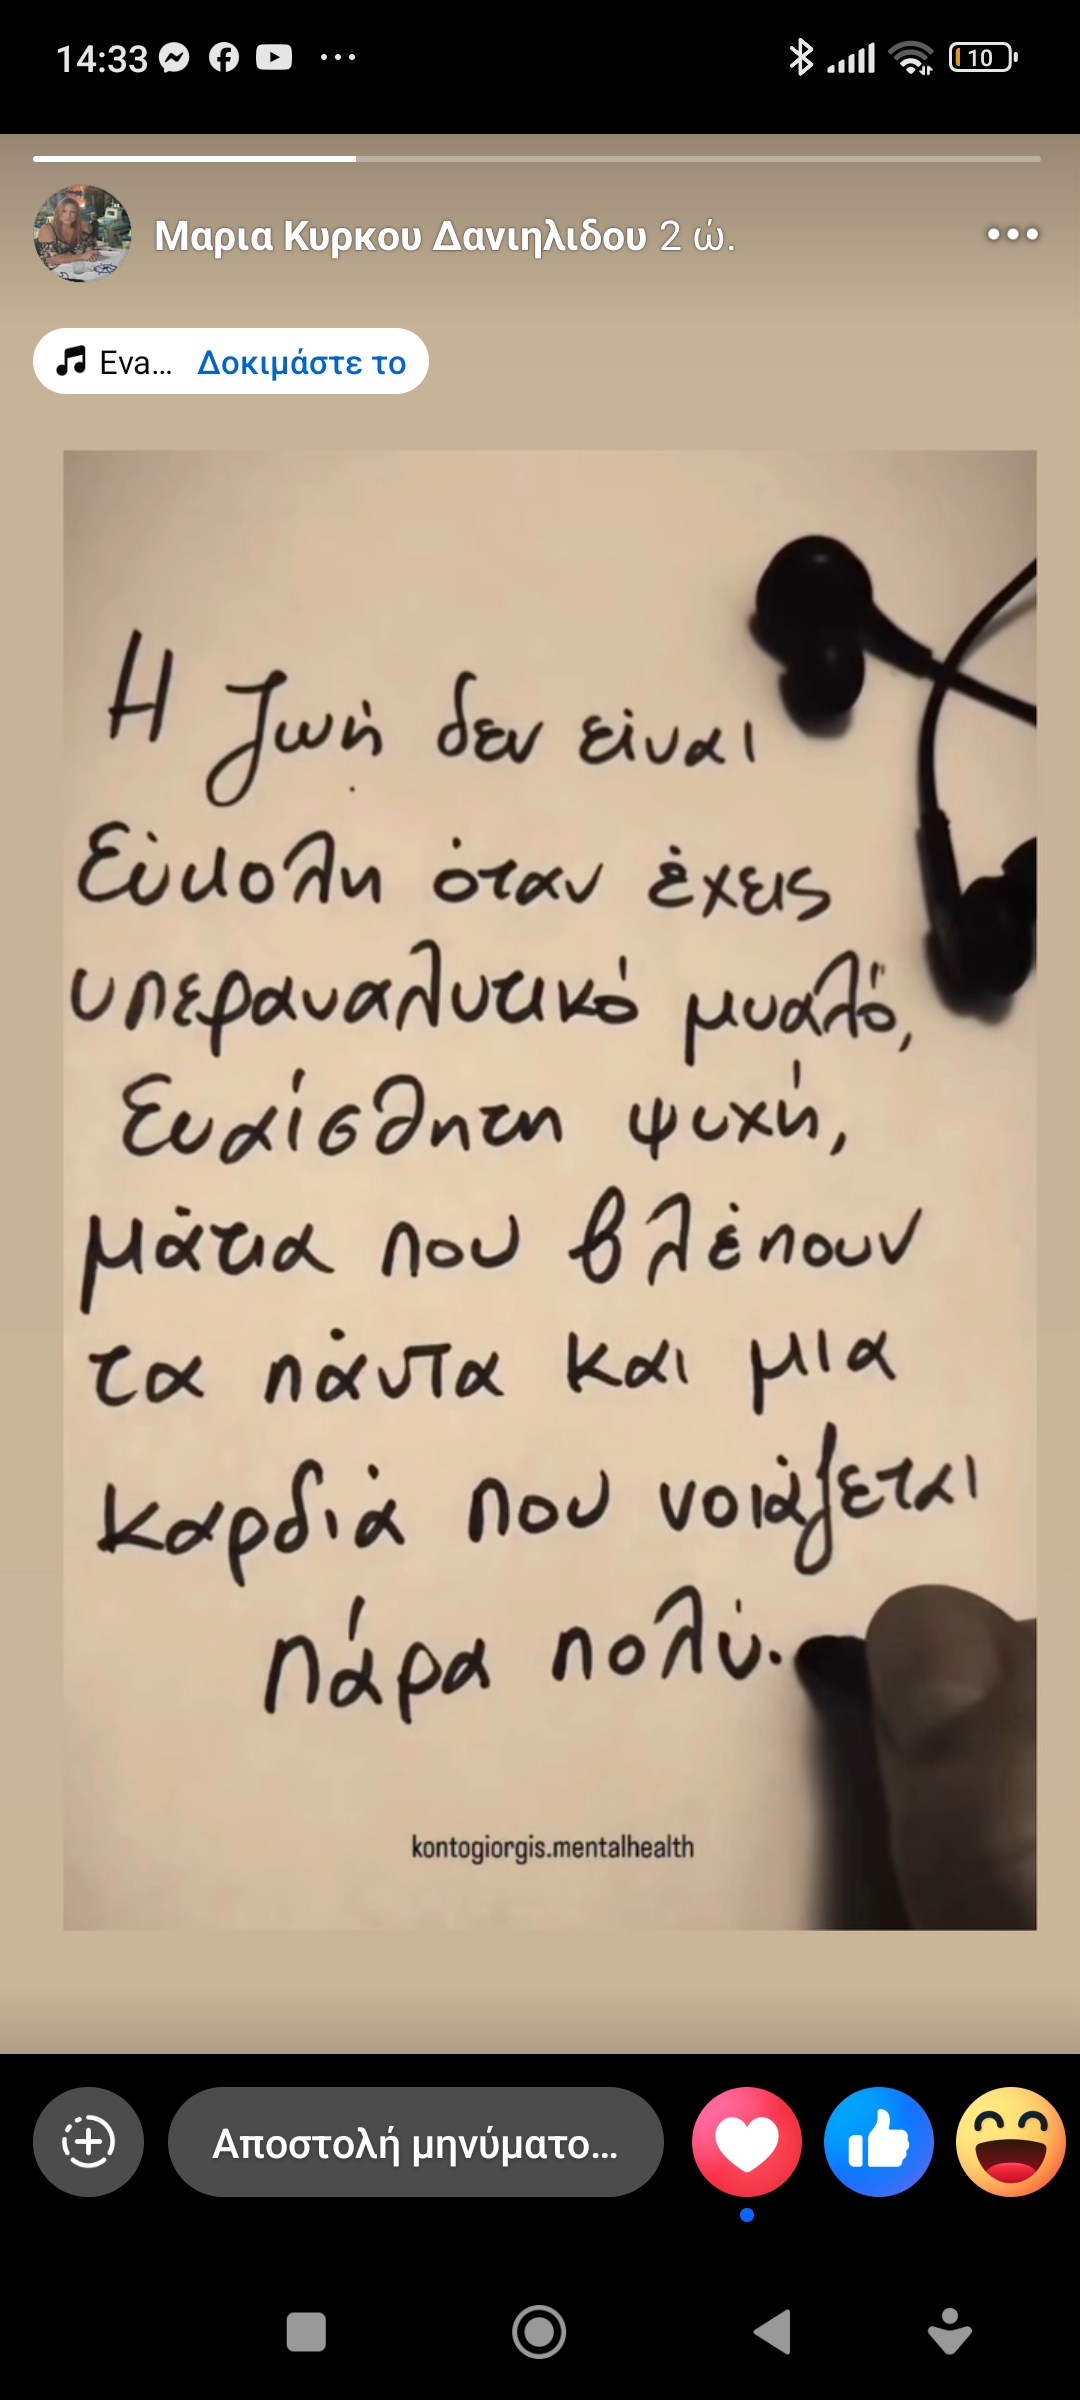 14:33
10
Μαρια Κυρκου Δανιηλιδου 2 ώ.
Eva... Δοκιμάστε το
Η ζωή δεν είναι
εύκολη όταν έχεις
υπεραναλυτικό μυαλό,
ευαίσθητη ψυχή,
μάτια που βλέπουν
τα πάντα και μια
καρδιά που νοιάζεται
πάρα πολύ.
kontogiorgis.mentalhealth
Αποστολή μηνύματο...